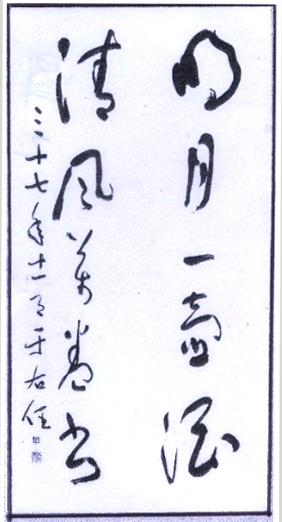 明月一壺酒
清風萬卷書
三十七年十一月于右任